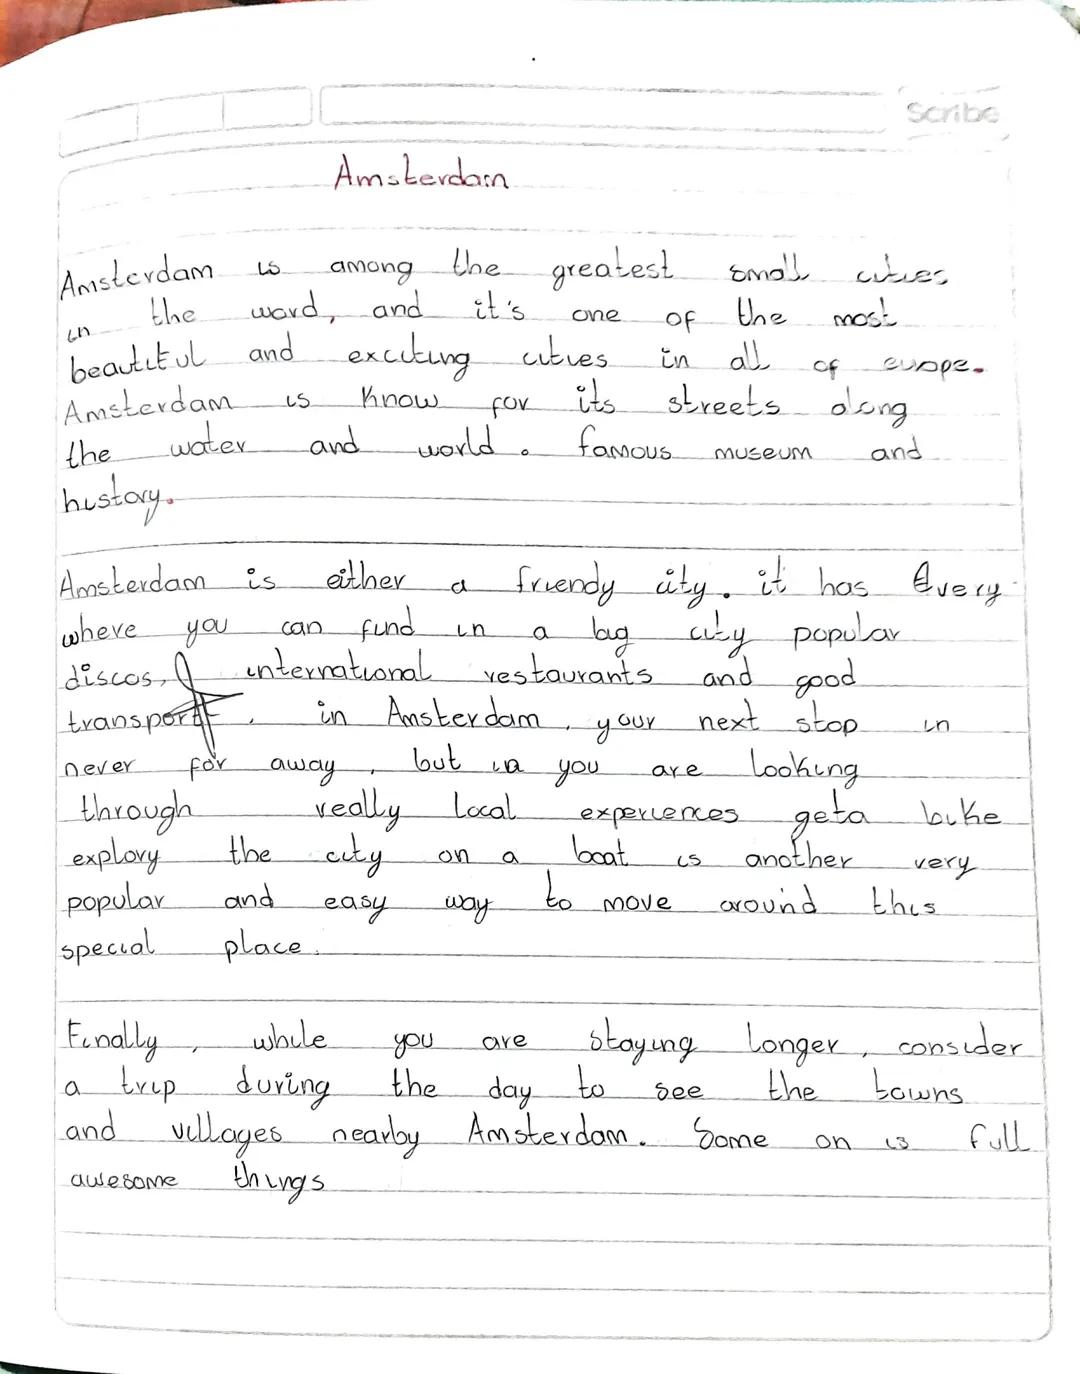 Scribe
Amsterdam
Amsterdam is among the greatest small cities
in the word, and it's one of the most
beautiful and exciting cities in all of europe.
Amsterdam is Know for its streets along
the water and world. famous museum and
history.
Amsterdam is either a friendy city. it has Every
where you can find in a big city popular
discos, international restaurants and good
transport, in Amsterdam, your next stop in
never for away, but in you are looking
through really local experiences get a bike
explory the city on a boat is another very
popular and easy way to move around this
special place.
Finally, while you are staying longer, consider
a trip during the day to see the towns
and villages nearby Amsterdam. Some on is full
awesome things